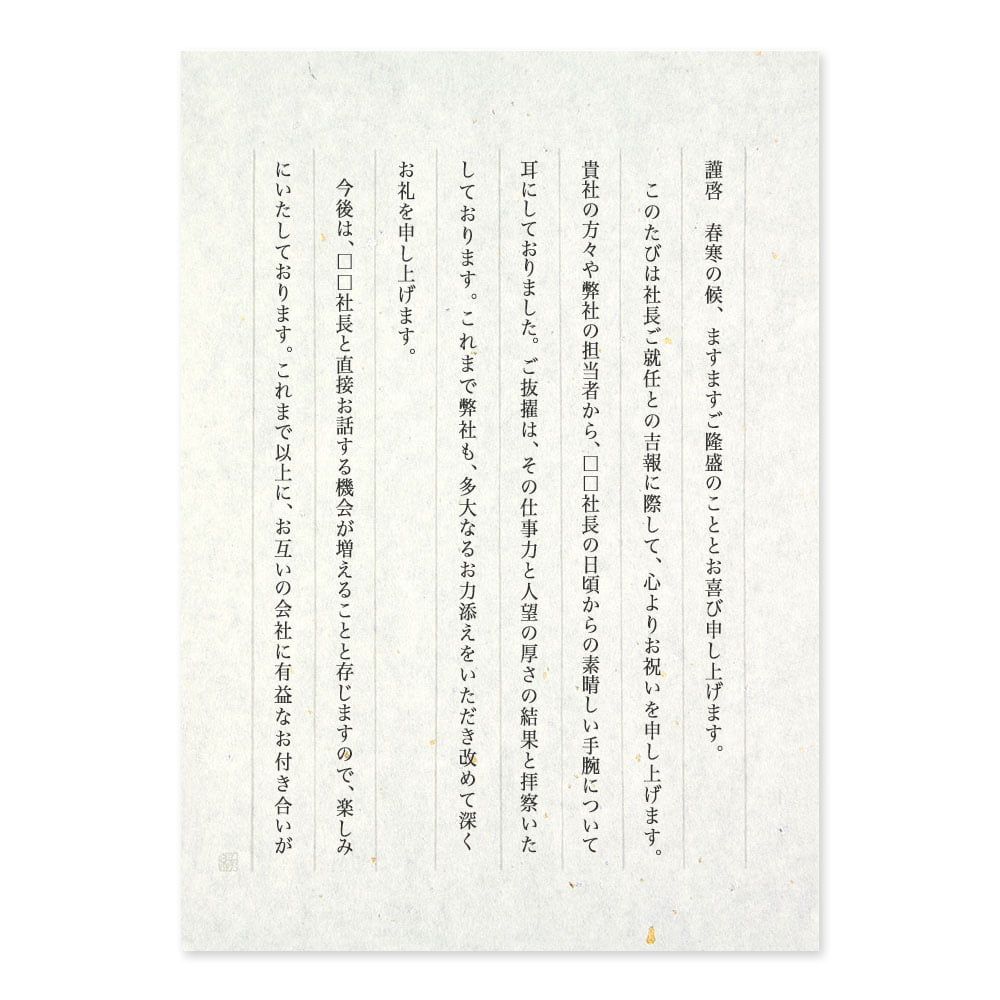 謹啓　春寒の候、ますますご隆盛のこととお喜び申し上げます。
　このたびは社長ご就任との吉報に際して、心よりお祝いを申し上げます。
貴社の方々や弊社の担当者から、□□社長の日頃からの素晴しい手腕について
耳にしておりました。ご抜擢は、その仕事力と人望の厚さの結果と拝察いた
しております。これまで弊社も、多大なるお力添えをいただき改めて深く
お礼を申し上げます。
　今後は、□□社長と直接お話する機会が増えることと存じますので、楽しみ
にいたしております。これまで以上に、お互いの会社に有益なお付き合いが